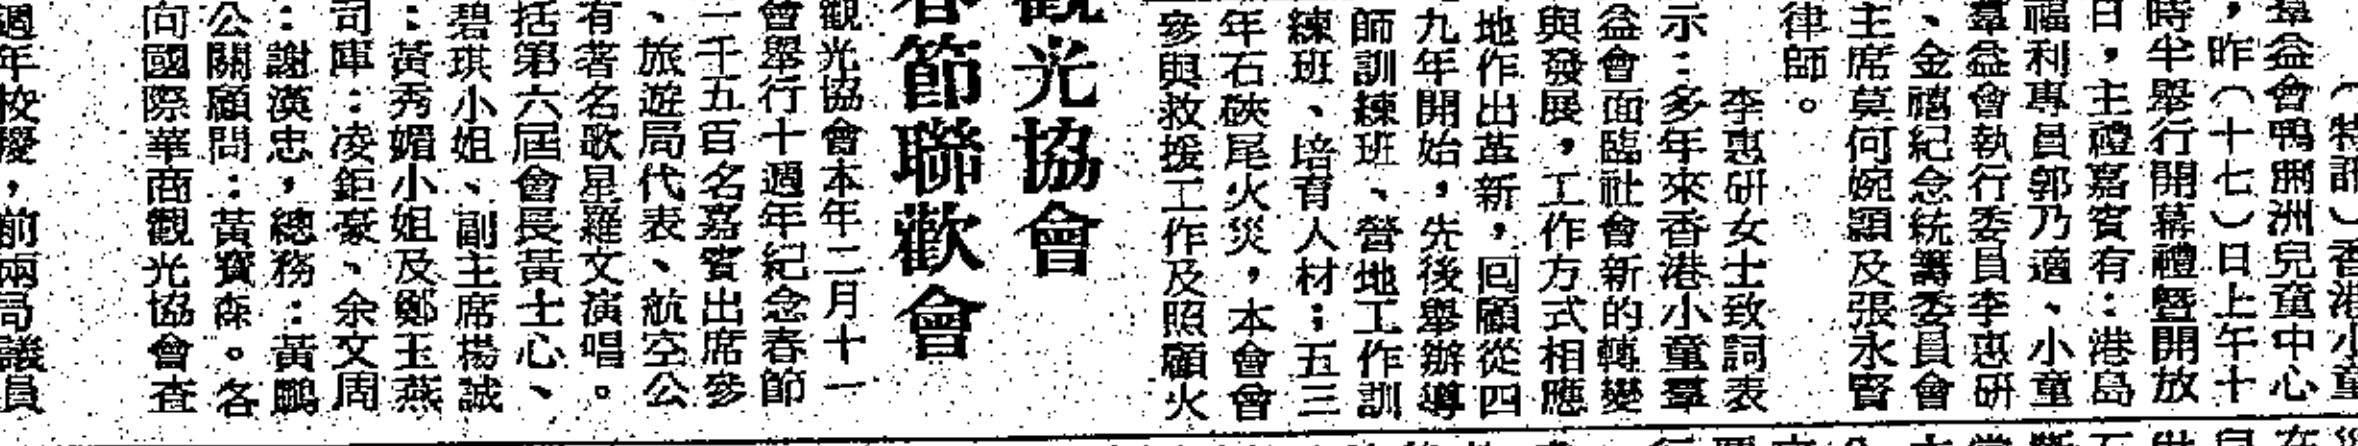 （特訊）香港小童
羣益會鴨脷洲兒童中心
，昨（十七）日上午十
時半舉行開幕禮暨開放
日，主禮嘉賓有：港島
福利專員郭乃適、小童
羣益會執行委員李惠研
、金禧紀念統籌委員會
主席莫何婉穎及張永賢
律師。
李惠研女士致詞表
示：多年來香港小童羣
益會面臨社會新的轉變
與發展，工作方式相應
地作出革新，回顧從四
九年開始，先後舉辦導
師訓練班、營地工作訓
練班、培育人材；五三
年石硤尾火災，本會曾
參與救援工作及照顧火
觀光協會
春節聯歡會
觀光協會本年二月十一
會舉行十週年紀念春節
一千五百名嘉賓出席參
、旅遊局代表、航空公
有著名歌星羅文演唱。
括第六屆會長黃士心、
碧琪小姐、副主席楊誠
：黃秀媚小姐及鄭玉燕
司庫：凌鉅豪、余文周
：謝漢忠，總務：黃鵬
公關顧問：黃寶森。各
向國際華商觀光協會查
週年校慶，前兩局議員